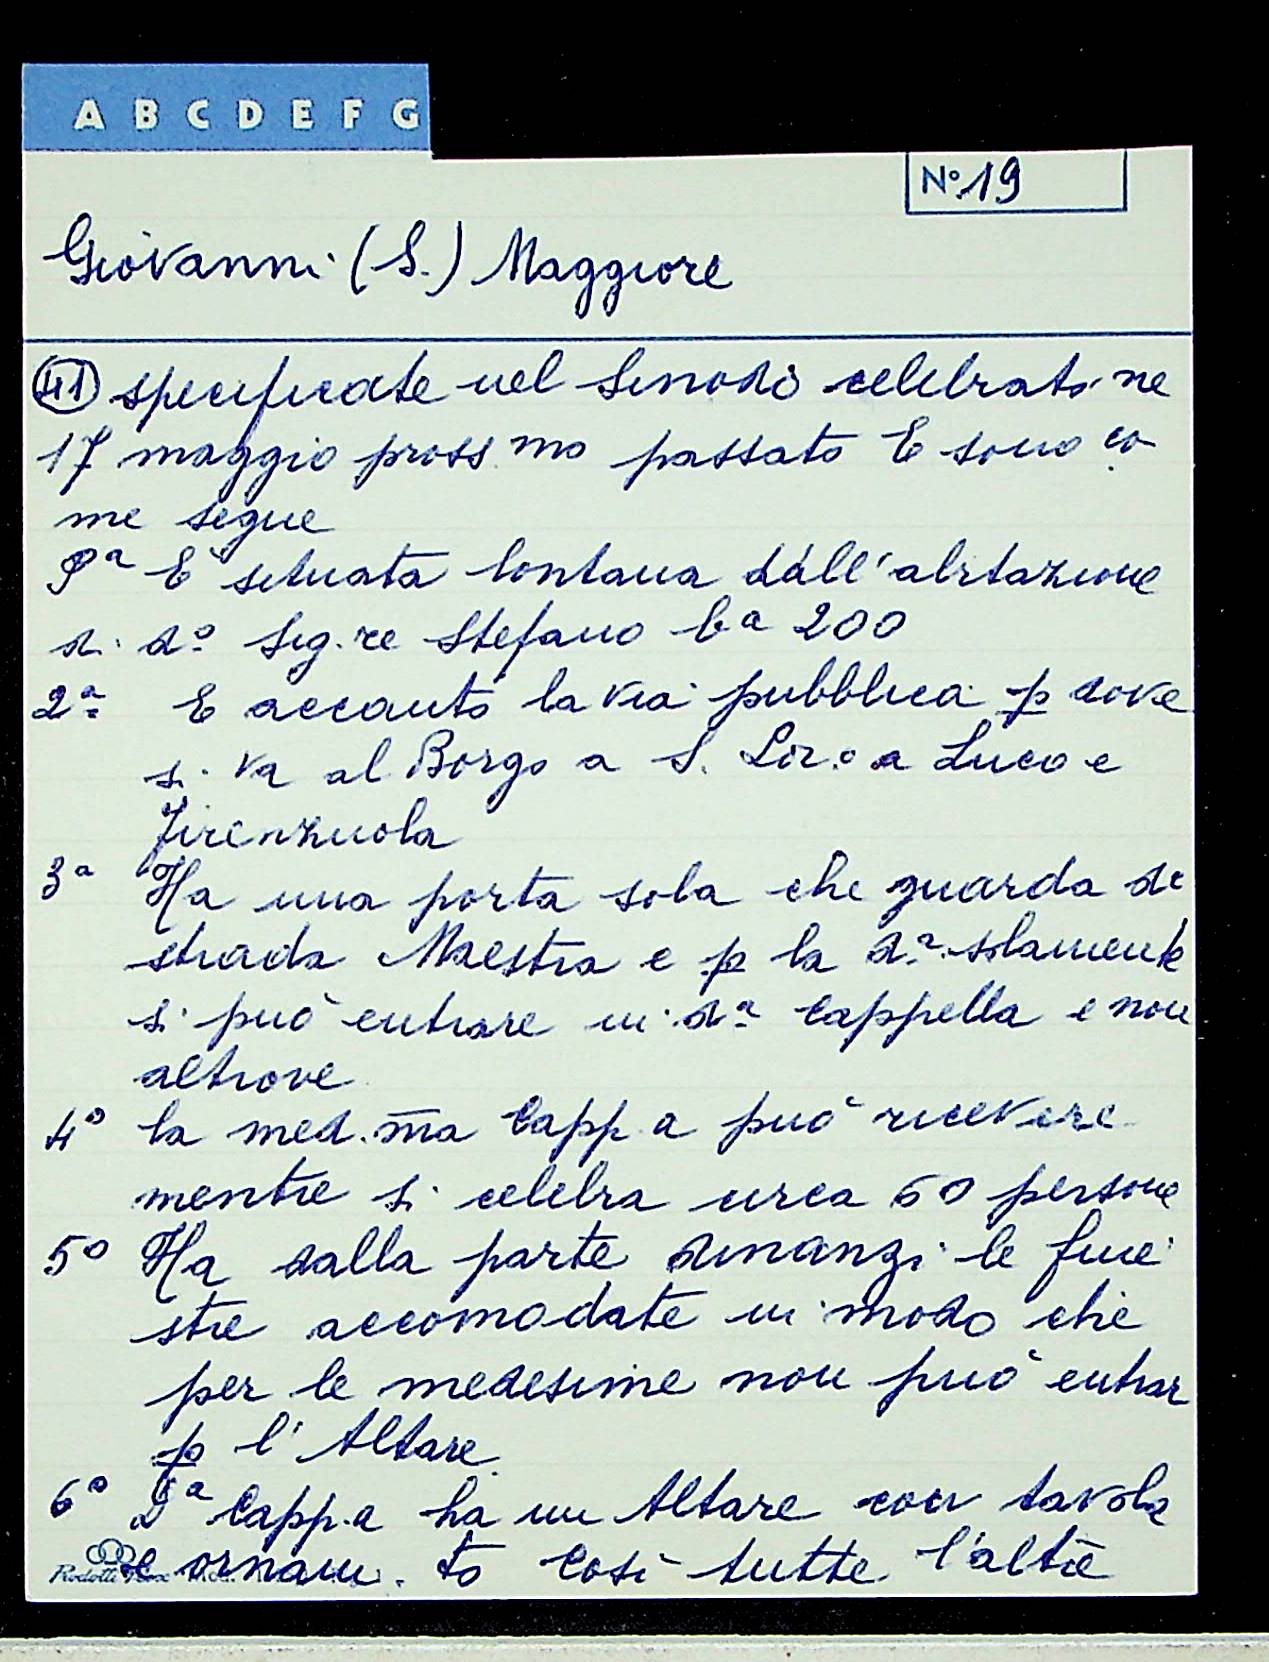 A B C D E F G
Nº 19
Giovanni (S.) Maggiore
(41) specificate nel Sinodo celebrato ne
17 maggio pross.mo passato E sono co
me segue
Pª E' situata lontana dall'abitazione
di dº Sig.re Stefano bª 200
2ª E accanto la via pubblica p dove
si va al Borgo a S. Lor.o a Luco e
Firenzuola
3ª Ha una porta sola che guarda di
strada Maestra e p la dª solamente
si può entrare in dª Cappella e non
altrove
4º la med.ma Capp.a può ricevere
mentre si celebra circa 60 persone
5º Ha dalla parte dinanzi le fine
stre accomodate in modo che
per le medesime non può entrar
p l'Altare
6º Dª Capp.a ha un Altare con tavola
e ornam.to Così tutte l'altre